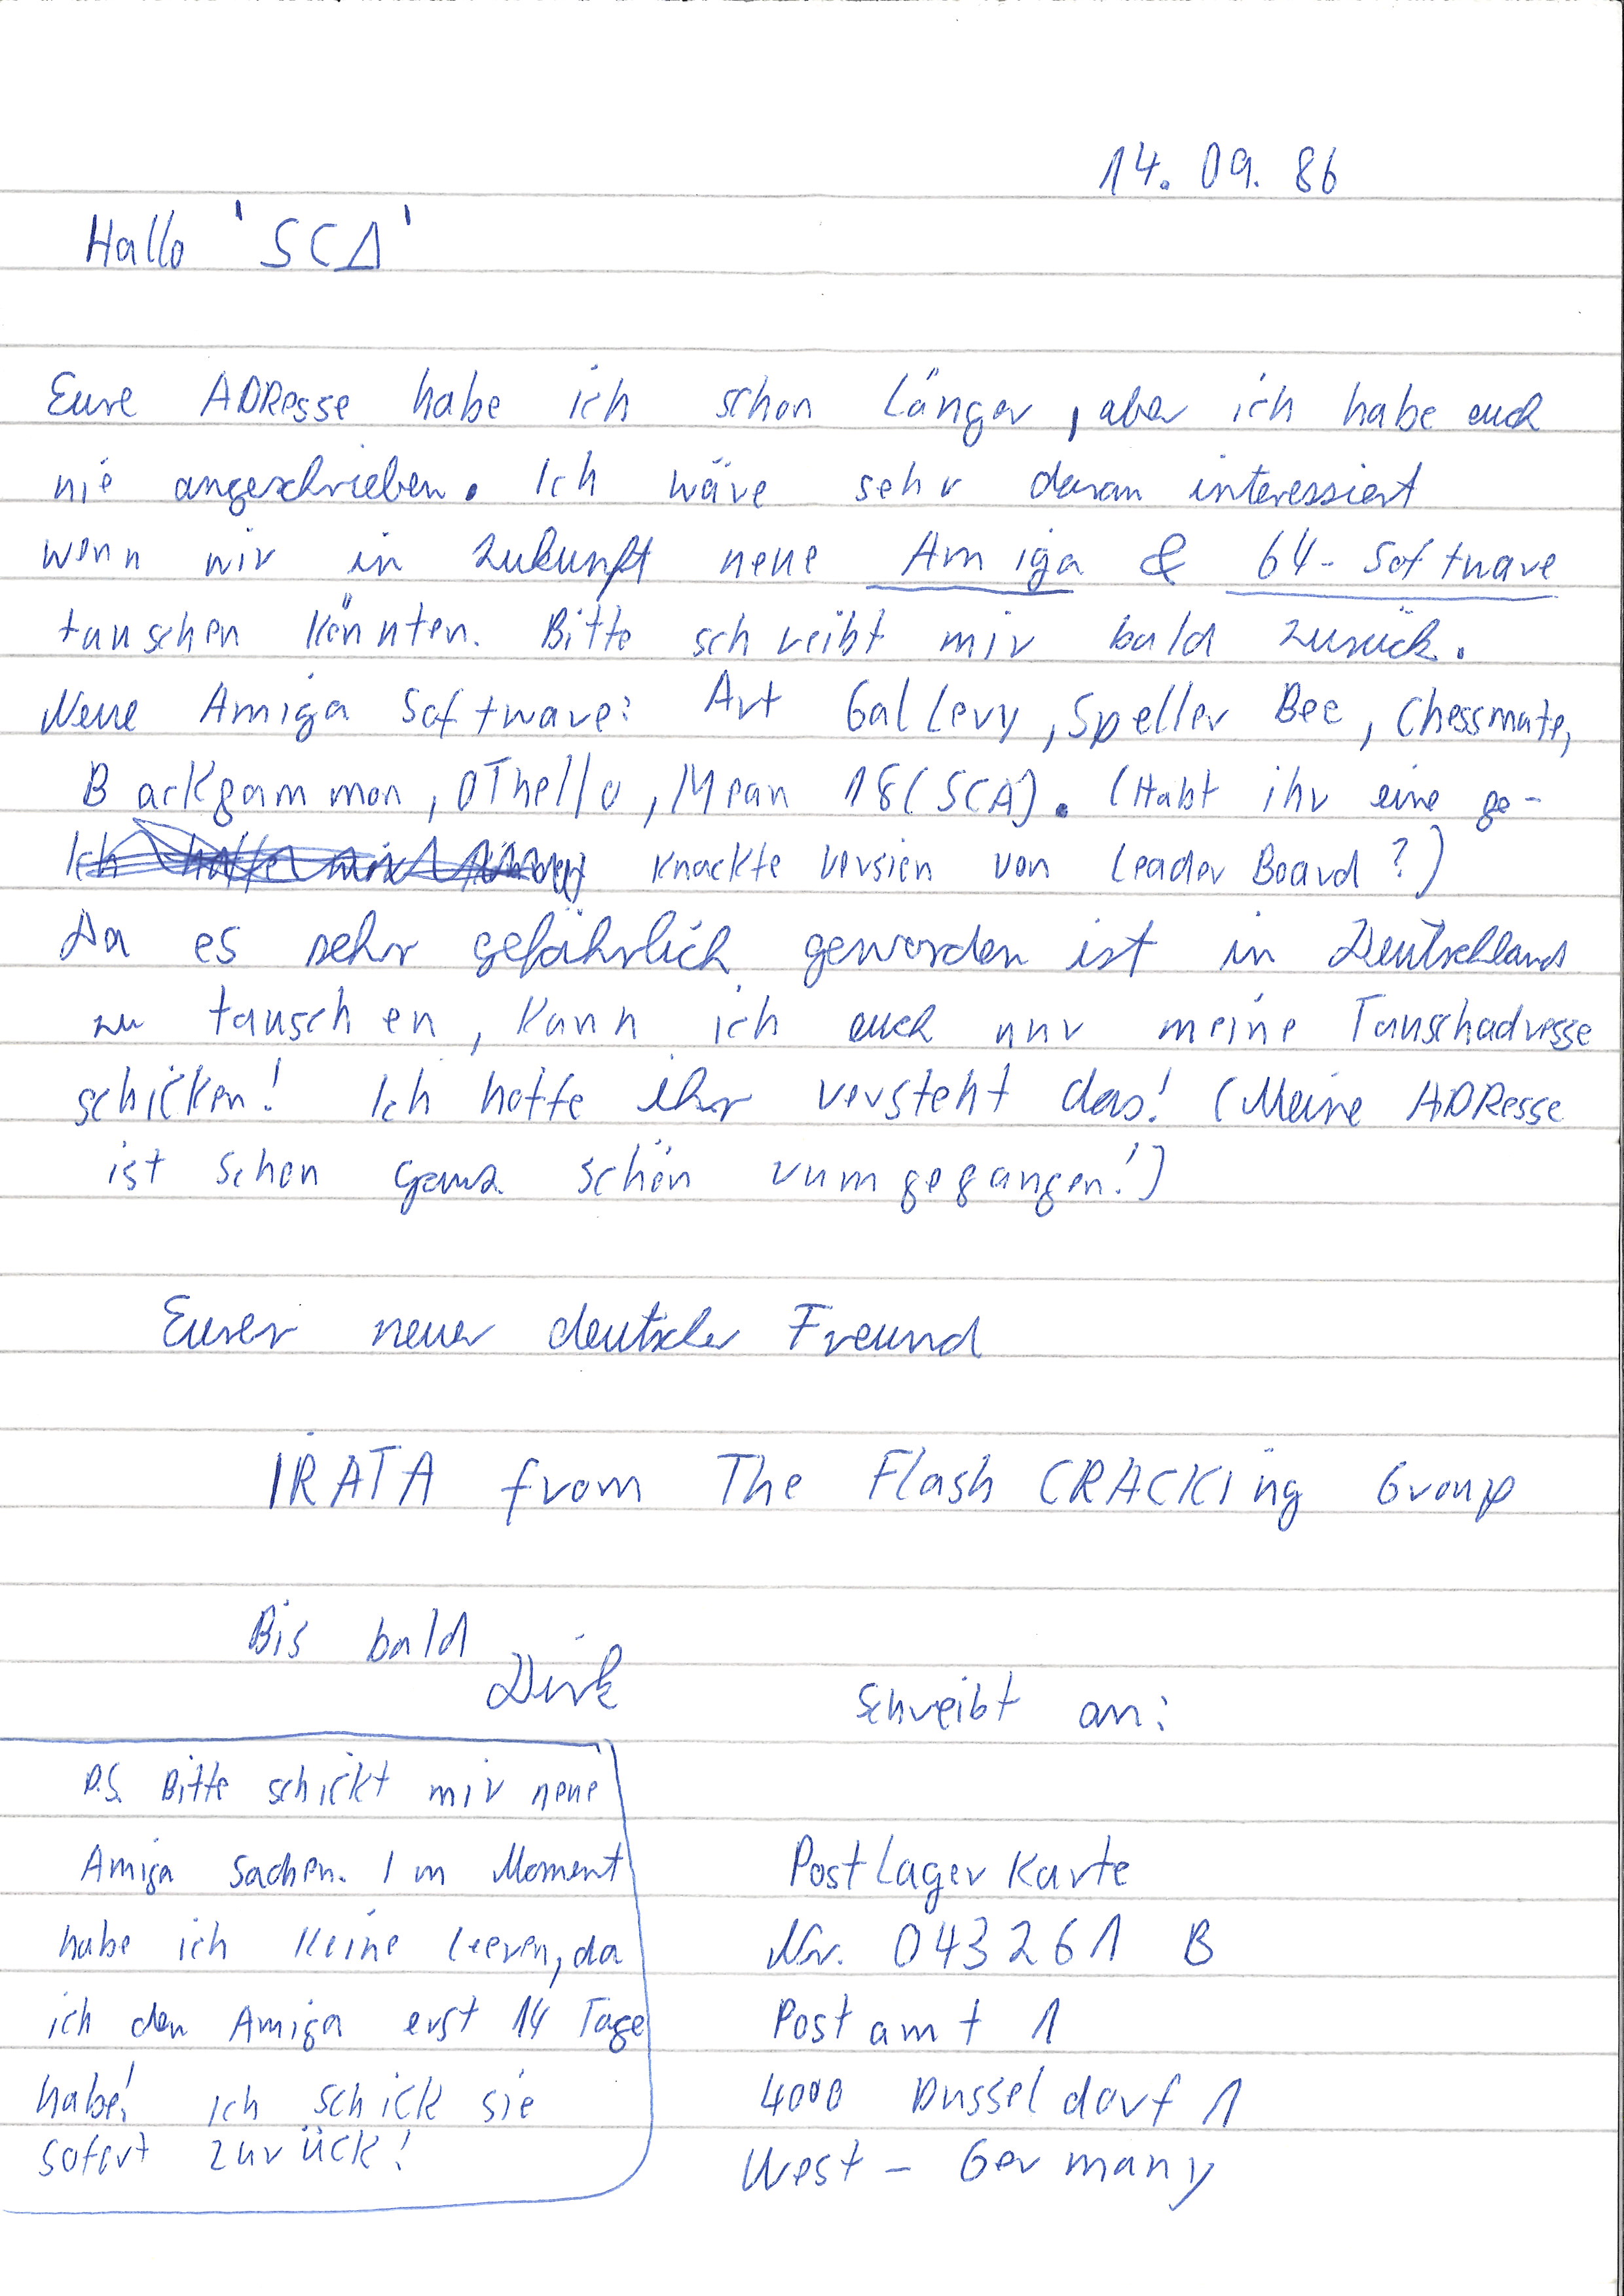 14. 09. 86
Hallo 'SCA'
Eure ADResse habe ich schon länger, aber ich habe euch
nie angeschrieben. Ich wäre sehr daran interessiert
wenn wir in Zukunft neue Amiga & 64-Software
tauschen könnten. Bitte schreibt mir bald zurück.
Neue Amiga Software: Art Gallery, Speller Bee, Chessmate,
Backgammon, OThello, Mean 18 (SCA). (Habt ihr eine ge-
Ich knackte Version von Leader Board?)
Da es sehr gefährlich geworden ist in Deutschland
zu tauschen, kann ich euch nur meine Tauschadresse
schicken! Ich hoffe ihr versteht das! (Meine ADResse
ist schon ganz schön rumgegangen!)
Eurer neuer deutscher Freund
IRATA from The Flash CRACKing Group
Bis bald
Dirk
Schreibt an:
P.S. Bitte schickt mir neue
Amiga Sachen. Im Moment
habe ich keine leeren, da
ich den Amiga erst 14 Tage
habe! Ich schick sie
sofort zurück!
PostLagerKarte
Nr. 043261 B
Postamt 1
4000 Dusseldorf 1
West - Germany